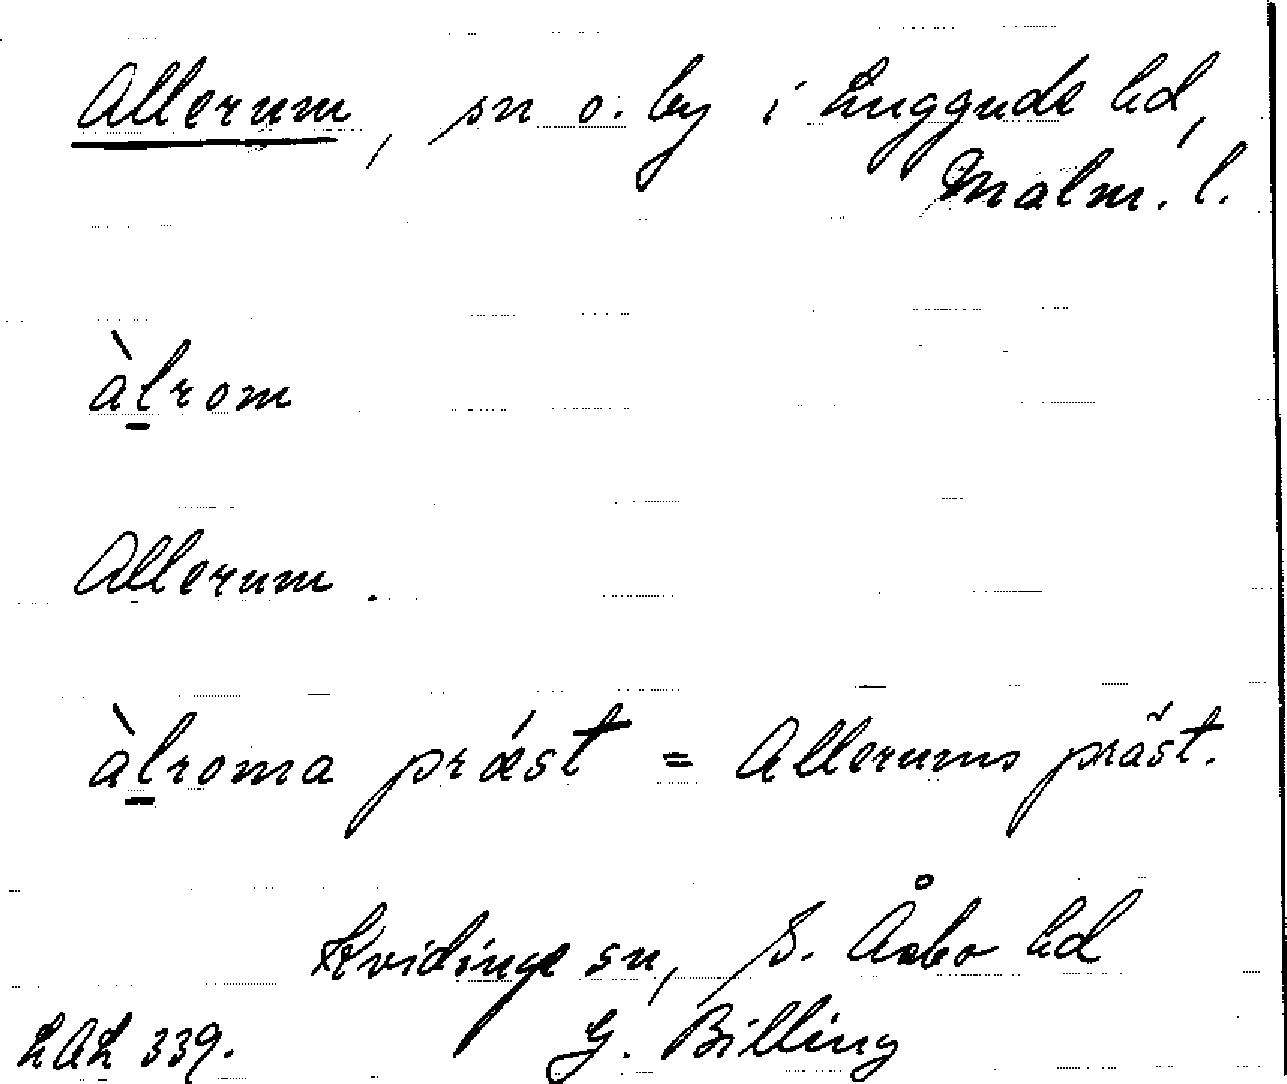 Allerum, sn o. by i Luggude hd,
Malm. l.
àl̲rom
Allerum.
àl̲roma prǽst = Allerums präst.
Kvidinge sn, S. Åsbo hd
LAL 339. G. Billing